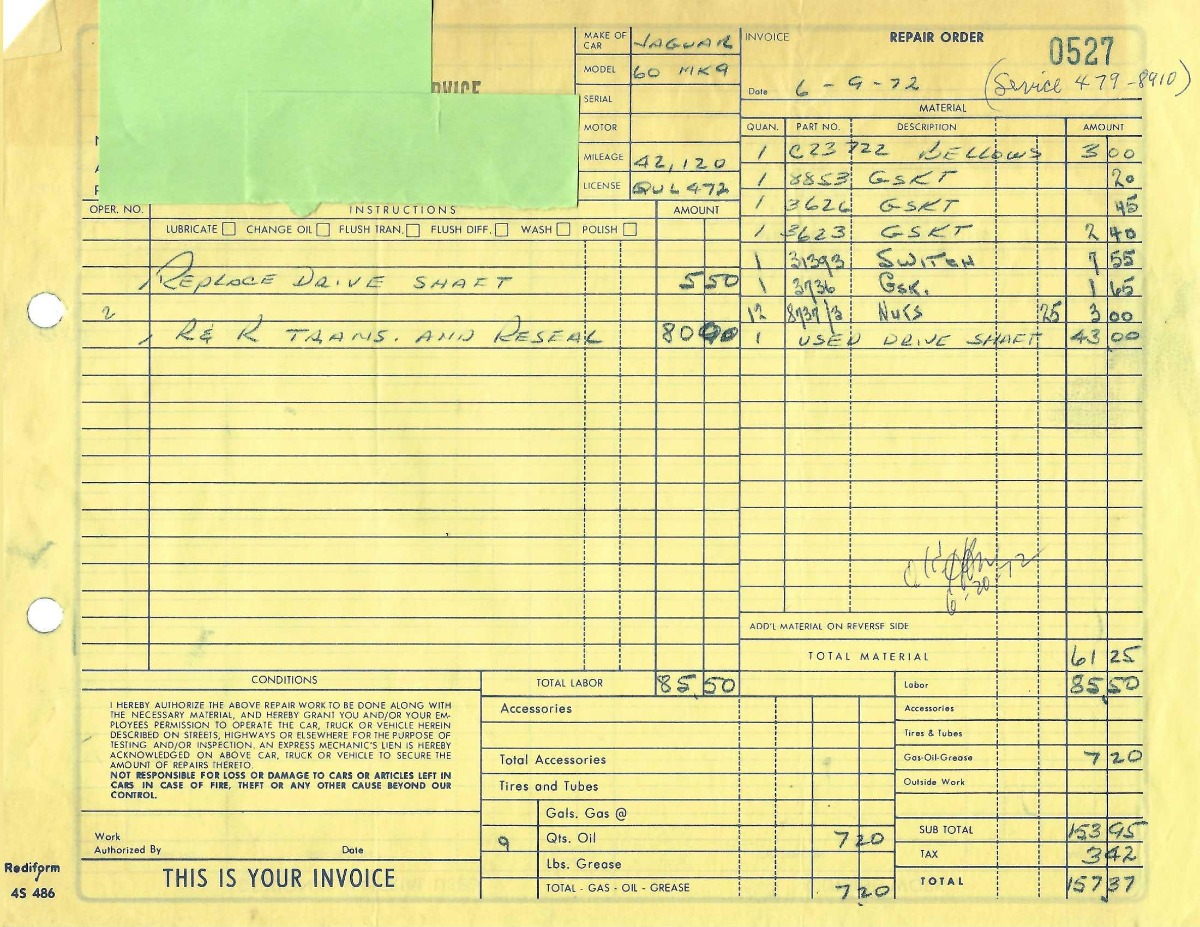 MAKE OF CAR JAGUAR
MODEL 60 MK9
SERIAL
MOTOR
MILEAGE 42,120
LICENSE QUL 472
INVOICE REPAIR ORDER 0527
Date 6-9-72 (Service 479-8910)
MATERIAL
QUAN. PART NO. DESCRIPTION AMOUNT
1 C23722 BELLOWS 3 00
1 8853 GSKT 20
1 3626 GSKT 45
1 3623 GSKT 2 40
1 31393 SWITCH 7 55
1 3736 GSK. 1 65
12 8737/3 NUTS 25 3 00
1 USED DRIVE SHAFT 43 00
OPER. NO. INSTRUCTIONS AMOUNT
LUBRICATE CHANGE OIL FLUSH TRAN. FLUSH DIFF. WASH POLISH
REPLACE DRIVE SHAFT 5 50
2
R&R TRANS. AND RESEAL 80 00
6-20-72
ADD'L MATERIAL ON REVERSE SIDE
TOTAL MATERIAL 61 25
CONDITIONS
I HEREBY AUTHORIZE THE ABOVE REPAIR WORK TO BE DONE ALONG WITH
THE NECESSARY MATERIAL, AND HEREBY GRANT YOU AND/OR YOUR EM-
PLOYEES PERMISSION TO OPERATE THE CAR, TRUCK OR VEHICLE HEREIN
DESCRIBED ON STREETS, HIGHWAYS OR ELSEWHERE FOR THE PURPOSE OF
TESTING AND/OR INSPECTION. AN EXPRESS MECHANIC'S LIEN IS HEREBY
ACKNOWLEDGED ON ABOVE CAR, TRUCK OR VEHICLE TO SECURE THE
AMOUNT OF REPAIRS THERETO.
NOT RESPONSIBLE FOR LOSS OR DAMAGE TO CARS OR ARTICLES LEFT IN
CARS IN CASE OF FIRE, THEFT OR ANY OTHER CAUSE BEYOND OUR
CONTROL.
Work
Authorized By Date
THIS IS YOUR INVOICE
Rediform
4S 486
TOTAL LABOR 85 50
Accessories
Total Accessories
Tires and Tubes
Gals. Gas @
9 Qts. Oil 7 20
Lbs. Grease
TOTAL - GAS - OIL - GREASE 7 20
Labor 85 50
Accessories
Tires & Tubes
Gas-Oil-Grease 7 20
Outside Work
SUB TOTAL 153 95
TAX 3 42
TOTAL 157 37